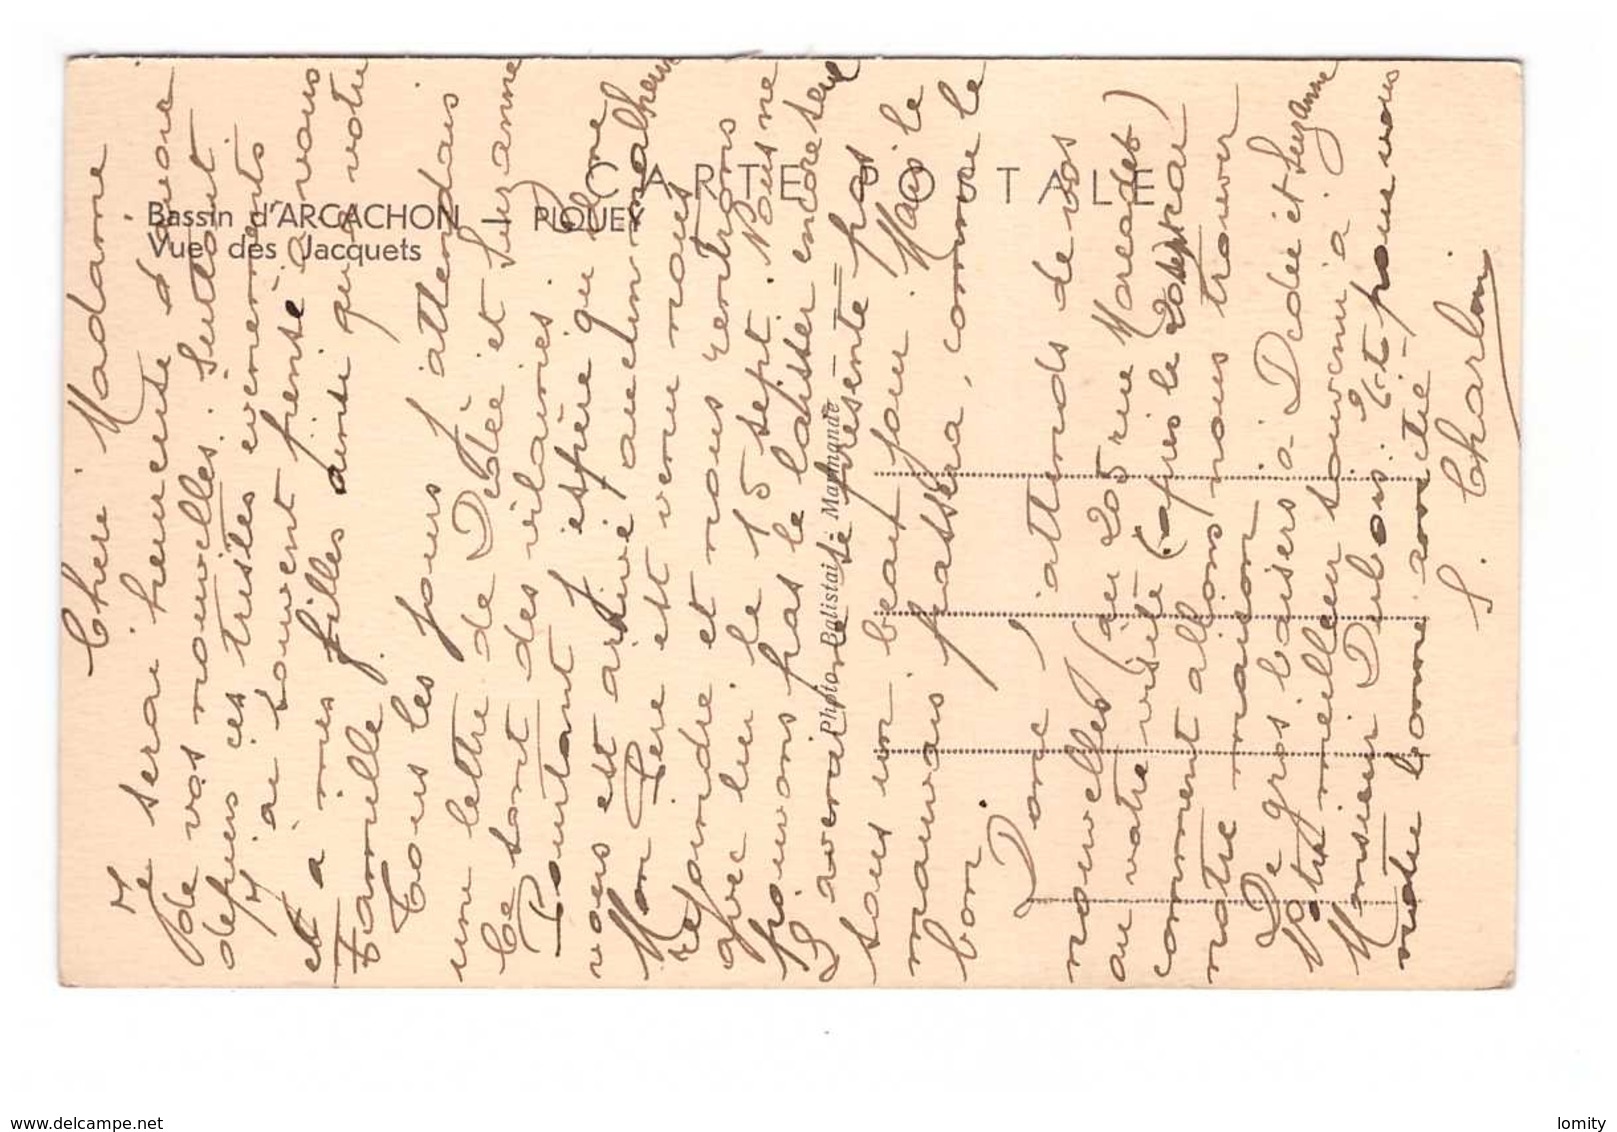 CARTE POSTALE
Bassin d'ARCACHON — PIQUEY
Vue des Jacquets
Photo Balistai - Marmande
Chere Madame
Je serai heureuse d'avoir
de vos nouvelles. Surtout
depuis ces tristes evenements
J'ai souvent pensé à vous
et à mes filles ainsi qu'à votre
famille.
Tous les jours j'attendais
une lettre de Dédée et Suzanne
Ce sont des vilaines.
Pourtant j'espère qu'il ne
vous est arrivé aucun malheur
Mon Père est venu nous
rejoindre et nous rentrons
avec lui le 15 sept. Nous ne
pouvons pas le laisser encore seul
L'avenir ne se présente pas
sous un beau jour. Mais le
mauvais passera, comme le
bon.
Donc j'attends de vos
nouvelles (au 205 rue Marcadet)
ou votre visite (après le 20 sept car
comment allons nous trouver
notre maison
De gros baisers à Dédée et Suzanne
Votre meilleur souvenir à
Monsieur Dubois. Et pour vous
notre bonne amitié.
S. Charlin
www.delcampe.net
lomity